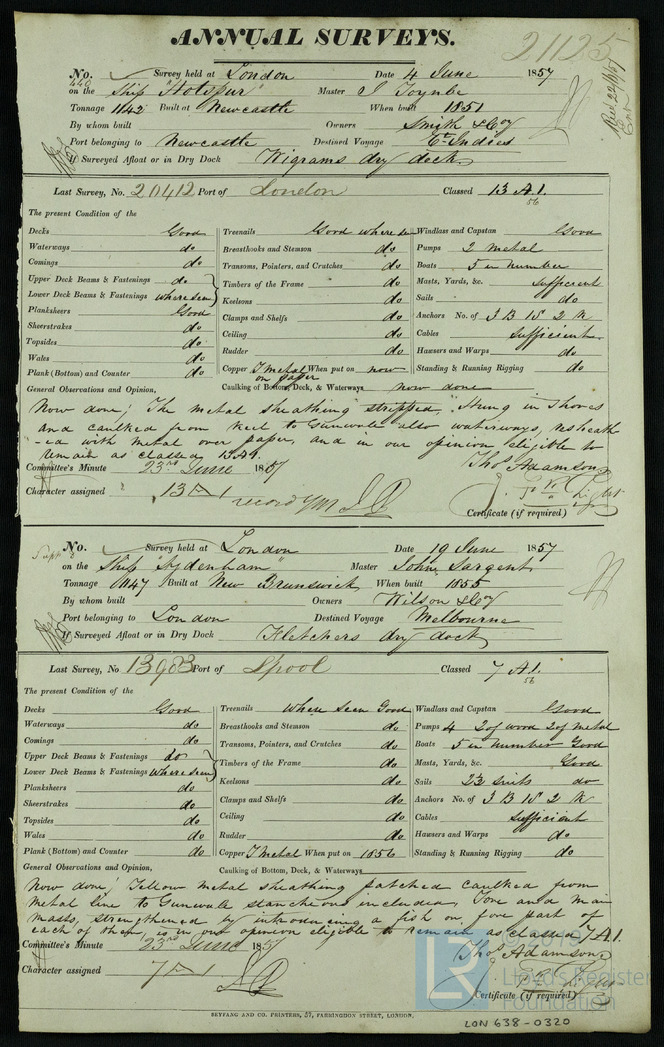 ANNUAL SURVEYS.
21125
No. 440 Survey held at London Date 4 June 1857
on the Ship "Hotspur" Master J Toynbe
Tonnage 1142 Built at Newcastle When built 1851
By whom built Owners Smith & Coy
Port belonging to Newcastle Destined Voyage Et Indies
If Surveyed Afloat or in Dry Dock Wigrams dry dock
Last Survey, No. 20412 Port of London Classed 13 A.1.
56
The present Condition of the
Decks Good Treenails Good where seen Windlass and Capstan Good
Waterways do Breasthooks and Stemson do Pumps 2 metal
Comings do Transoms, Pointers, and Crutches do Boats 5 in number
Upper Deck Beams & Fastenings do Timbers of the Frame do Masts, Yards, &c. sufficient
Lower Deck Beams & Fastenings where seen Keelsons do Sails do
Planksheers Good Clamps and Shelfs do Anchors No. of 3 B 1 S 2 K
Sheerstrakes do Ceiling do Cables sufficient
Topsides do Rudder do Hawsers and Warps do
Wales do Copper Y Metal on paper When put on now Standing & Running Rigging do
Plank (Bottom) and Counter do Caulking of Bottom, Deck, & Waterways now done
General Observations and Opinion,
Now done, The metal sheathing stripped, Hung in Shores
and caulked from keel to Gunwale also waterways, resheath
-ed with metal over paper, and in our opinion eligible to
remain as classed 13 A1.
Thos Adamson
Committee's Minute 23rd June 1857
Character assigned 13 A 1
record YM
Certificate (if required)
No. Survey held at London Date 19 June 1857
on the Ship "Sydenham" Master John Sargent
Tonnage 1147 Built at New Brunswick When built 1855
By whom built Owners Wilson & Coy
Port belonging to London Destined Voyage Melbourne
If Surveyed Afloat or in Dry Dock Fletchers dry dock
Last Survey, No 13903 Port of Lpool Classed 7 A.1.
56
The present Condition of the
Decks Good Treenails where seen Good Windlass and Capstan Good
Waterways do Breasthooks and Stemson do Pumps 4 2 of wood 2 of metal
Comings do Transoms, Pointers, and Crutches do Boats 5 in number Good
Upper Deck Beams & Fastenings do Timbers of the Frame do Masts, Yards, &c. Good
Lower Deck Beams & Fastenings where seen Keelsons do Sails 2½ suits do
Planksheers do Clamps and Shelfs do Anchors No. of 3 B 1 S 2 K
Sheerstrakes do Ceiling do Cables sufficient
Topsides do Rudder do Hawsers and Warps do
Wales do Copper Y Metal When put on 1856 Standing & Running Rigging do
Plank (Bottom) and Counter do Caulking of Bottom, Deck, & Waterways
General Observations and Opinion,
Now done, Yellow metal sheathing patched caulked from
metal line to Gunwale stancheons included, Fore and Main
masts, strengthened by introducing a fish on fore part of
each of them, is in our opinion eligible to remain as classed 7 A1.
Thos Adamson
Committee's Minute 23rd June 1857
Character assigned 7 A 1
Certificate (if required)
SEYFANG AND CO. PRINTERS, 57, FARRINGDON STREET, LONDON.
LON 638-0320
© 2019
LR
Lloyd's Register
Foundation